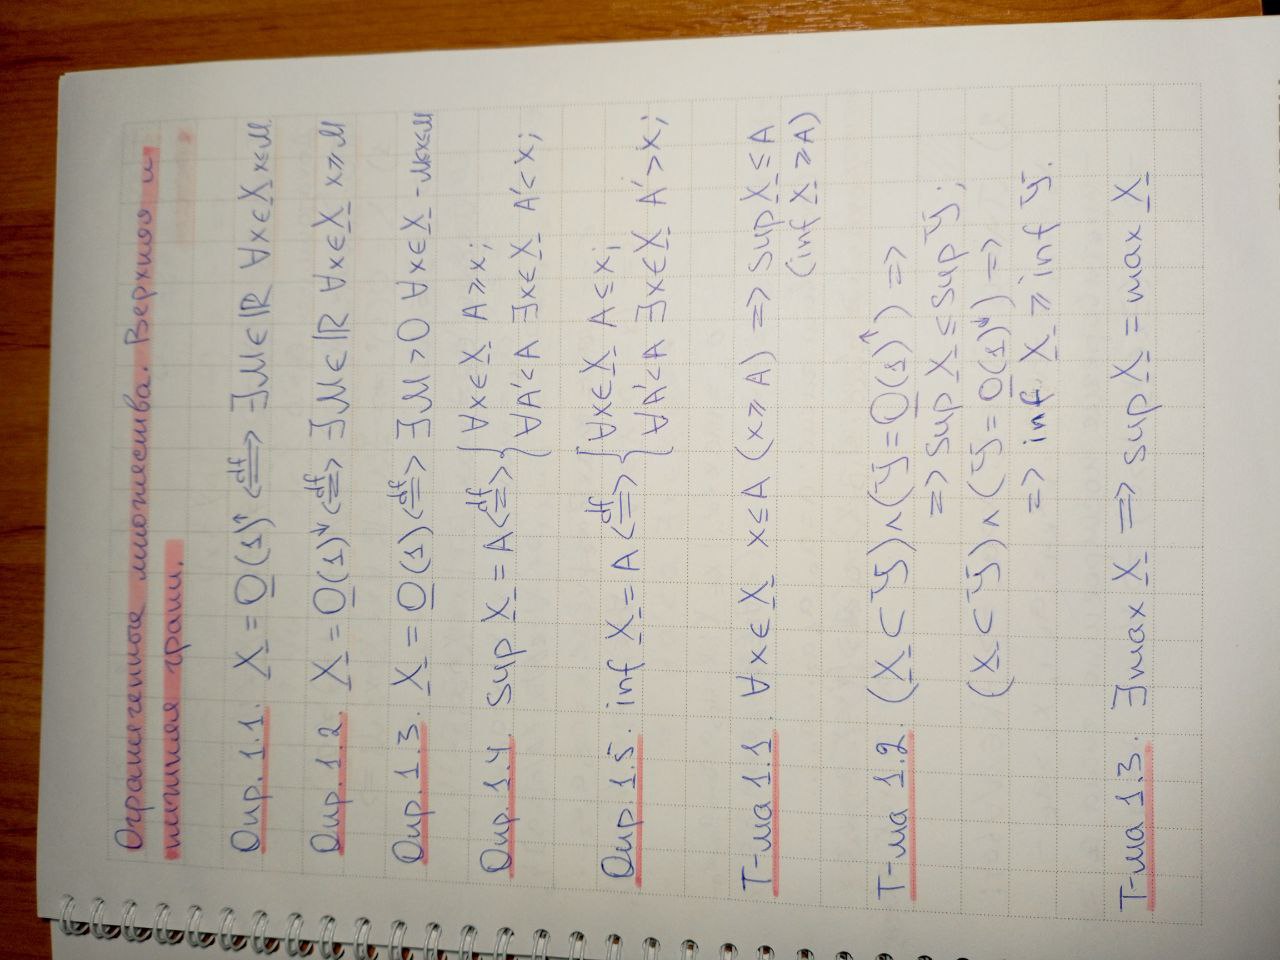 Ограниченные множества. Верхняя и
нижняя грани.
Опр. 1.1. X = O(1)↑ <=df=> ∃M∈ℝ ∀x∈X x≤M.
Опр. 1.2. X = O(1)↓ <=df=> ∃M∈ℝ ∀x∈X x≥M
Опр. 1.3. X = O(1) <=df=> ∃M>0 ∀x∈X -M≤x≤M
Опр. 1.4. sup X = A <=df=> { ∀x∈X A≥x;
∀A'<A ∃x∈X A'<x;
Опр. 1.5. inf X = A <=df=> { ∀x∈X A≤x;
∀A'<A ∃x∈X A'>x;
Т-ма 1.1. ∀x∈X x≤A (x≥A) => sup X ≤ A
(inf X ≥ A)
Т-ма 1.2. (X ⊂ Y) ∧ (Y = O(1)↑) =>
=> sup X ≤ sup Y;
(X ⊂ Y) ∧ (Y = O(1)↓) =>
=> inf X ≥ inf Y.
Т-ма 1.3. ∃max X => sup X = max X